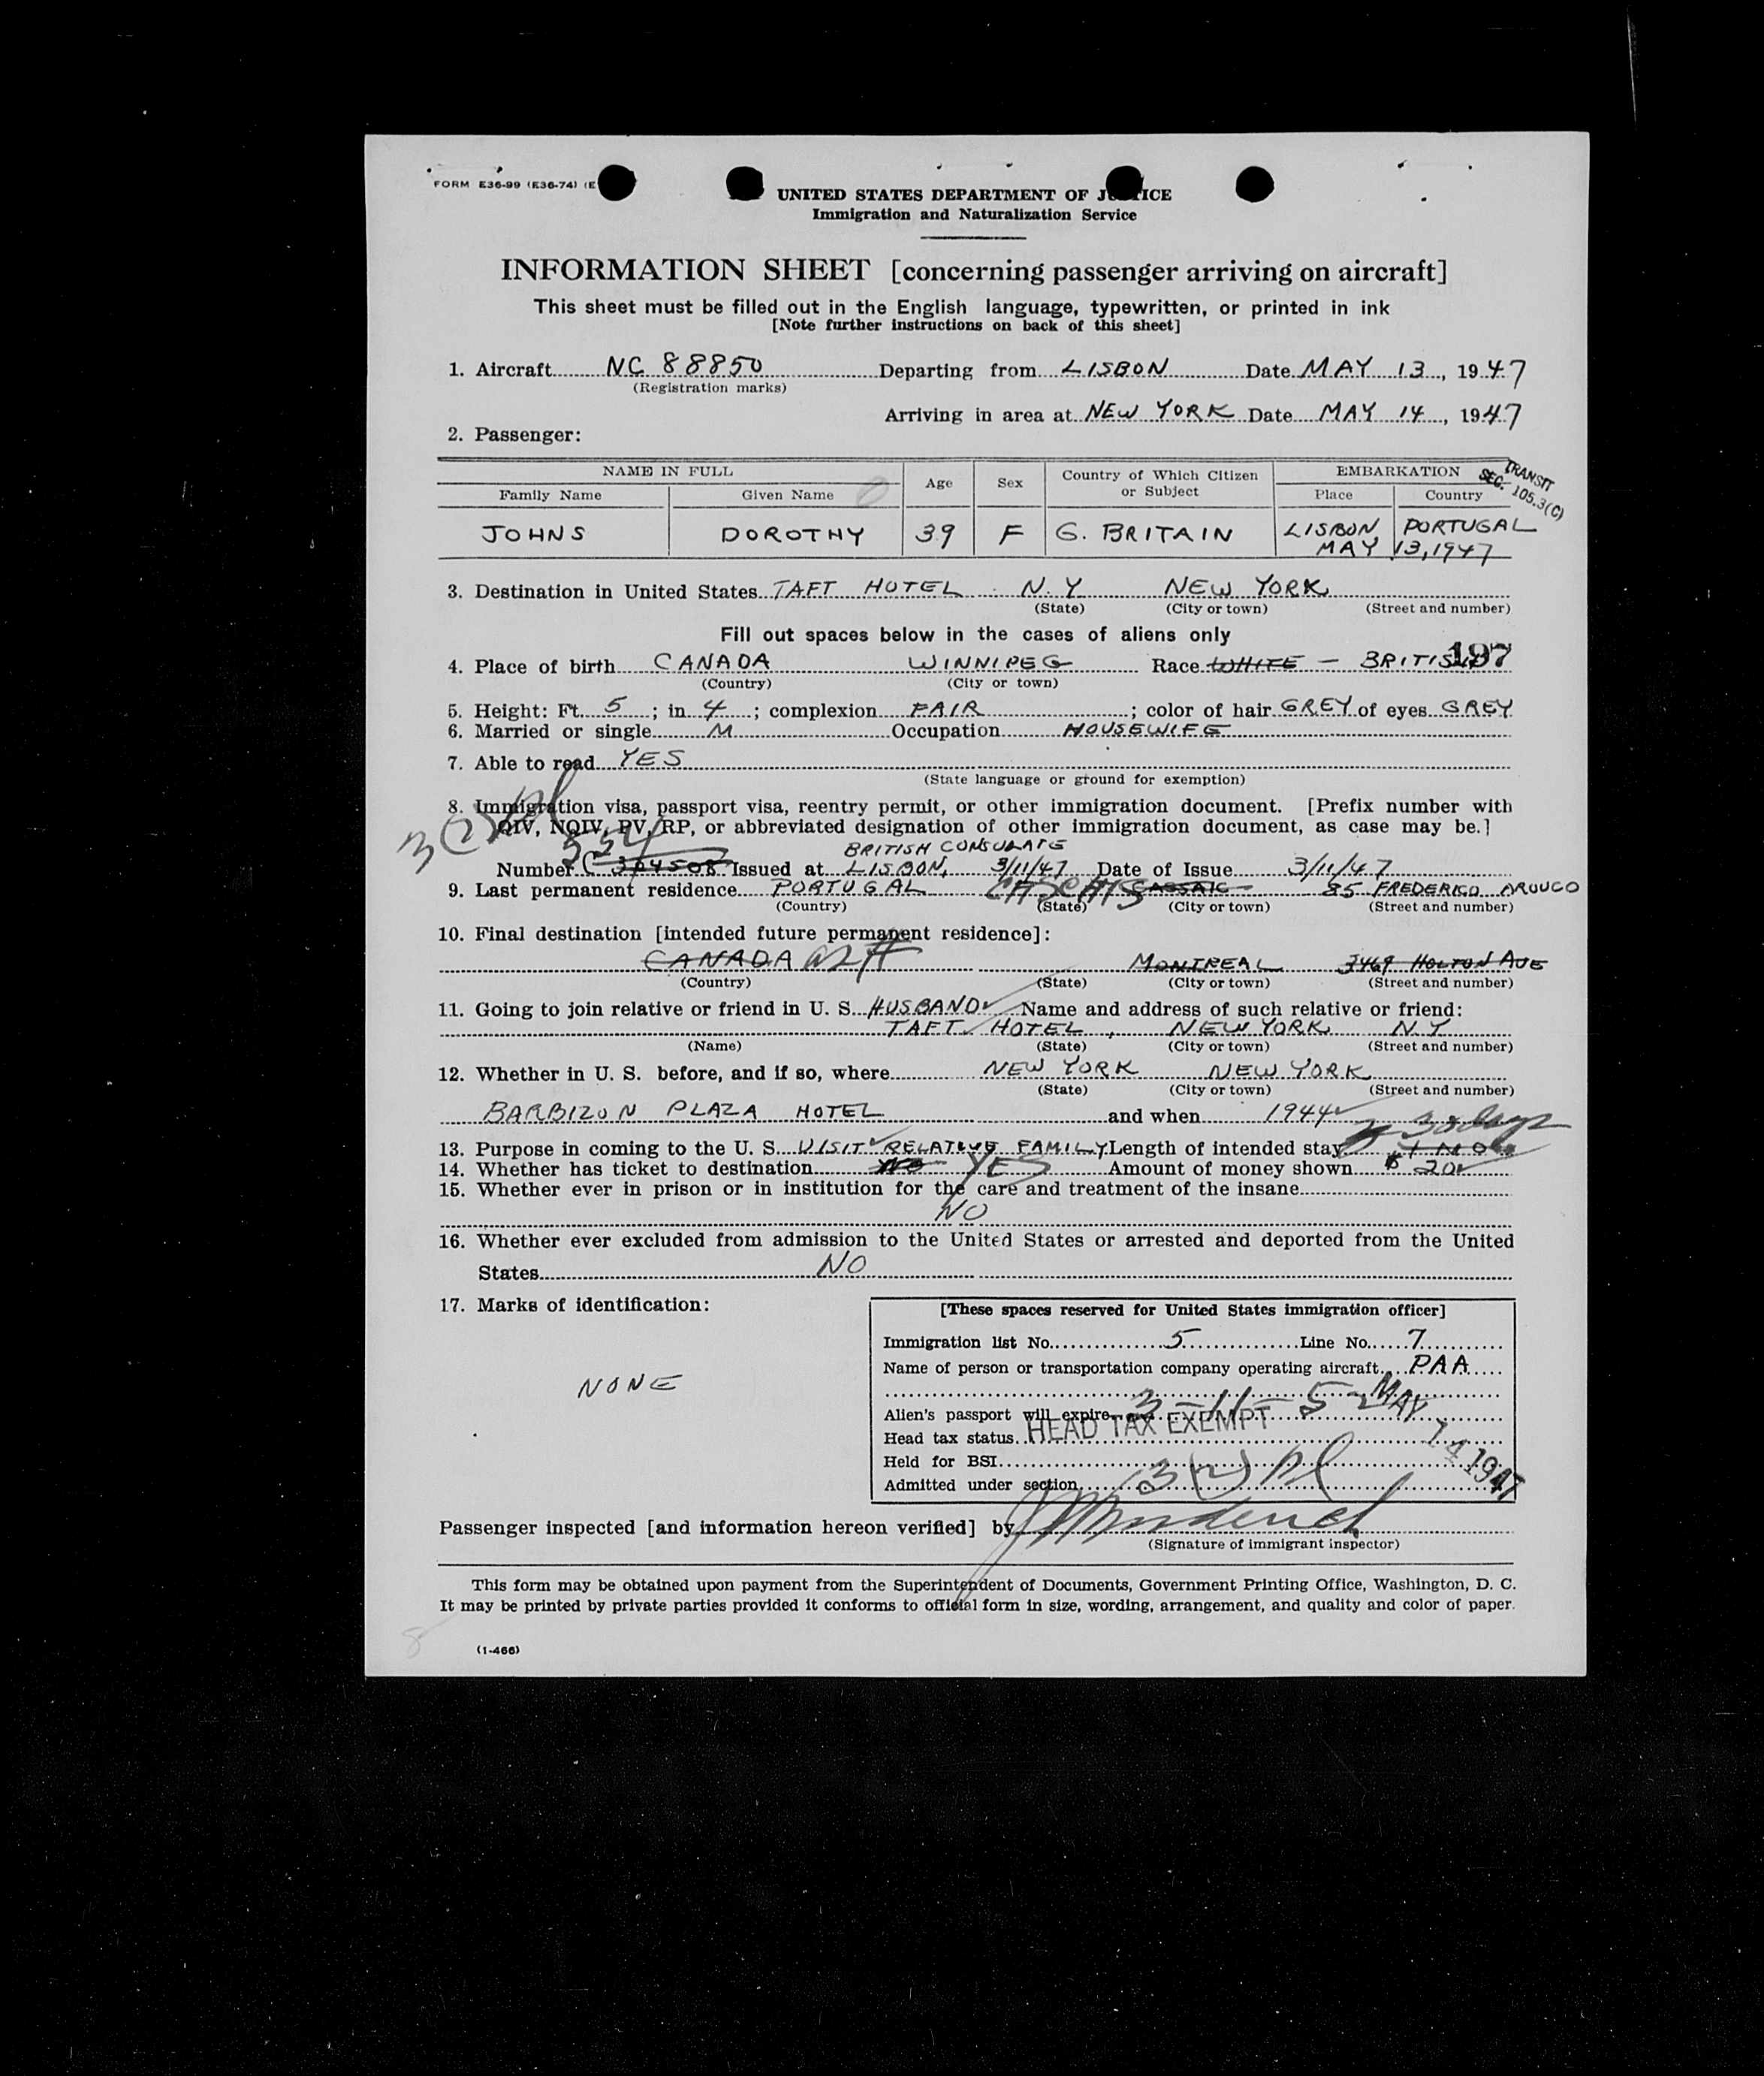 FORM E36-99 (E36-74) (E
UNITED STATES DEPARTMENT OF JUSTICE
Immigration and Naturalization Service
INFORMATION SHEET [concerning passenger arriving on aircraft]
This sheet must be filled out in the English language, typewritten, or printed in ink
[Note further instructions on back of this sheet]
1. Aircraft NC 88850 Departing from LISBON Date MAY 13, 1947
(Registration marks)
Arriving in area at NEW YORK Date MAY 14, 1947
2. Passenger:
NAME IN FULL Age Sex Country of Which Citizen or Subject EMBARKATION
Family Name Given Name Place Country
TRANSIT SEC. 105.3(C)
JOHNS DOROTHY 39 F G. BRITAIN LISBON PORTUGAL
MAY 13, 1947
3. Destination in United States TAFT HOTEL N.Y NEW YORK
(State) (City or town) (Street and number)
Fill out spaces below in the cases of aliens only
197
4. Place of birth CANADA WINNIPEG Race WHITE - BRITISH
(Country) (City or town)
5. Height: Ft. 5; in 4; complexion FAIR; color of hair GREY of eyes GREY
6. Married or single M Occupation HOUSEWIFE
7. Able to read YES
(State language or ground for exemption)
8. Immigration visa, passport visa, reentry permit, or other immigration document. [Prefix number with
QIV, NQIV, PV, RP, or abbreviated designation of other immigration document, as case may be.]
3(2) pl
BRITISH CONSULATE
Number C 304508 Issued at LISBON, 3/11/47 Date of Issue 3/11/47
9. Last permanent residence PORTUGAL CASCAIS 85 FREDERICO AROUCO
(Country) (State) (City or town) (Street and number)
10. Final destination [intended future permanent residence]:
CANADA MONTREAL 3469 HOLTON AVE
(Country) (State) (City or town) (Street and number)
11. Going to join relative or friend in U. S. HUSBAND Name and address of such relative or friend:
TAFT HOTEL, NEW YORK N.Y
(Name) (State) (City or town) (Street and number)
12. Whether in U. S. before, and if so, where NEW YORK NEW YORK
(State) (City or town) (Street and number)
BARBIZON PLAZA HOTEL and when 1944
30 days
13. Purpose in coming to the U. S. VISIT RELATIVE FAMILY Length of intended stay 1 MO
14. Whether has ticket to destination NO YES Amount of money shown $ 20
15. Whether ever in prison or in institution for the care and treatment of the insane
NO
16. Whether ever excluded from admission to the United States or arrested and deported from the United
States NO
17. Marks of identification:
NONE
[These spaces reserved for United States immigration officer]
Immigration list No. 5 Line No. 7
Name of person or transportation company operating aircraft PAA
Alien's passport will expire 3-11-52
Head tax status HEAD TAX EXEMPT
MAY 14 1947
Held for BSI
Admitted under section 3(2) pl
Passenger inspected [and information hereon verified] by
(Signature of immigrant inspector)
This form may be obtained upon payment from the Superintendent of Documents, Government Printing Office, Washington, D. C.
It may be printed by private parties provided it conforms to official form in size, wording, arrangement, and quality and color of paper.
(1-466)